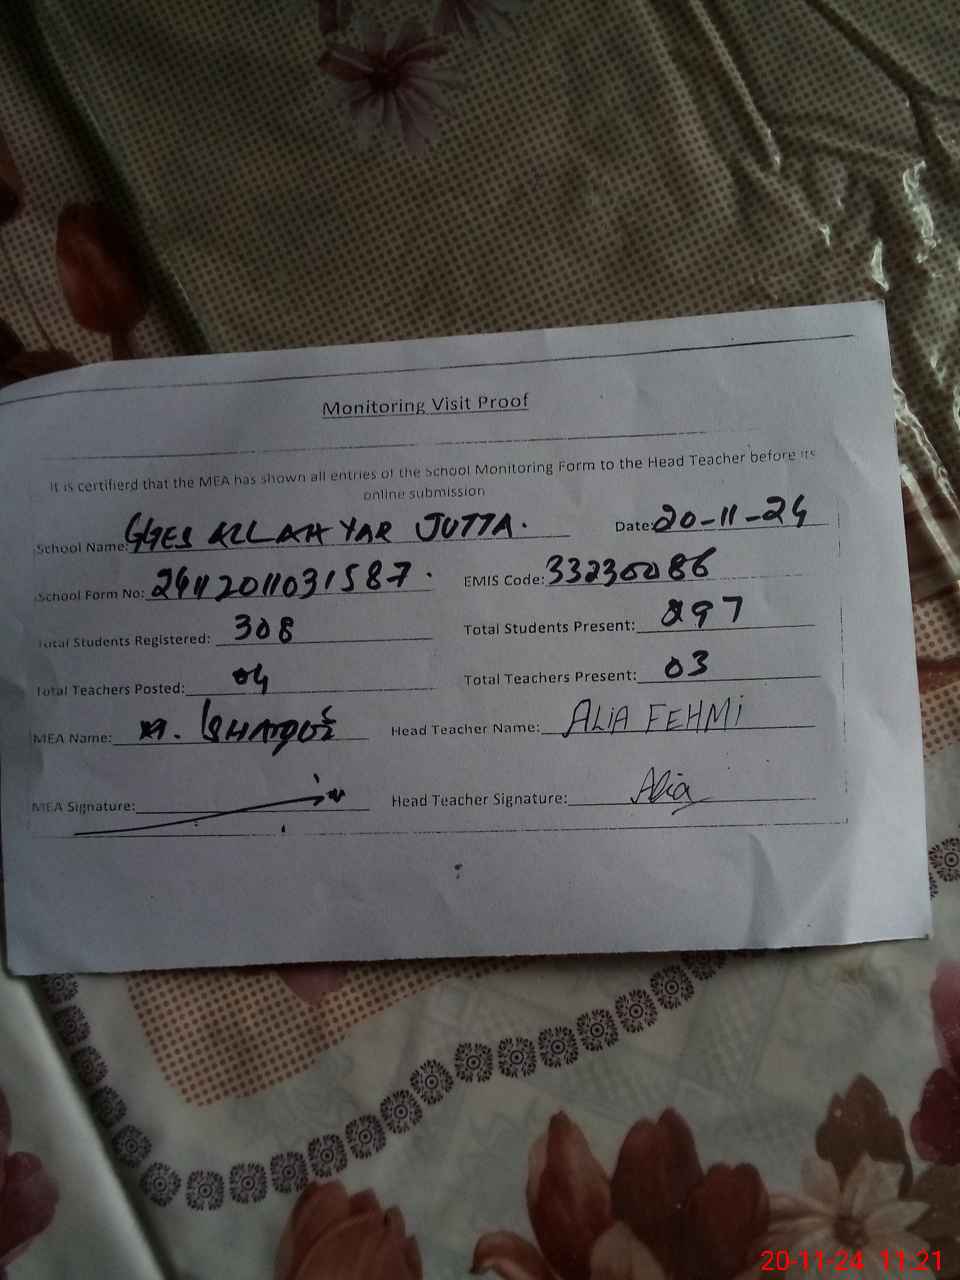 Monitoring Visit Proof
It is certifierd that the MEA has shown all entries of the School Monitoring Form to the Head Teacher before its
online submission
School Name: GGES ALLAH YAR JUTTA. Date: 20-11-24
School Form No: 24112011031587. EMIS Code: 33230086
Total Students Registered: 308 Total Students Present: 297
Total Teachers Posted: 04 Total Teachers Present: 03
MEA Name: M. Head Teacher Name: ALIA FEHMI
MEA Signature: Head Teacher Signature: Alia
20-11-24 11:21